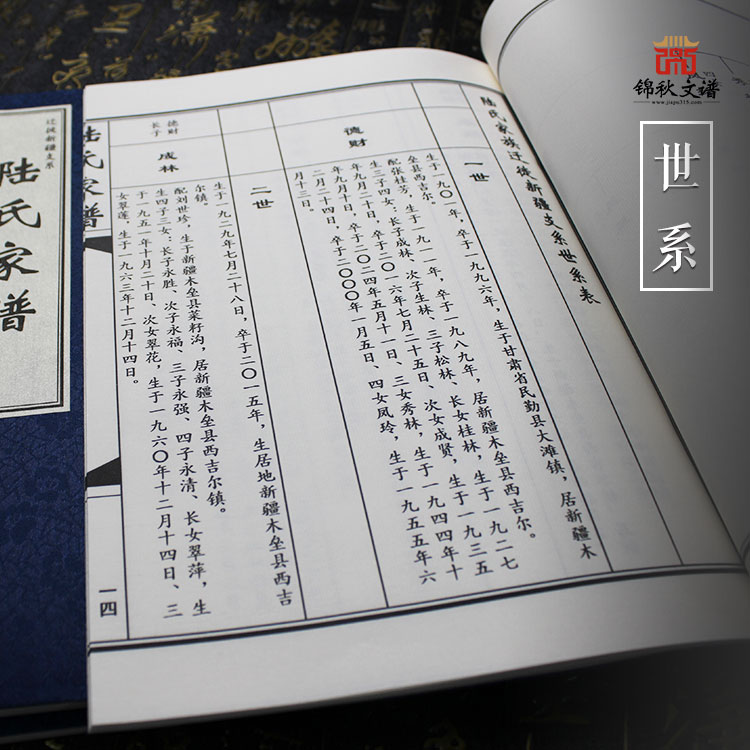 锦秋文谱
www.jiapu315.com
世系
陆氏家族迁徙新疆支系世系表
一世
德财
生于一九〇一年，卒于一九九六年，生于甘肃省民勤县大滩镇，居新疆木
垒县西吉尔。
配张桂芳，生于一九一一年，卒于一九八九年，居新疆木垒县西吉尔。
生三子四女：长子成林、次子生林、三子松林、长女桂林，生于一九二七
年九月二十日，卒于二〇一六年七月二十五日、次女成贤，生于一九三五
年九月十日，卒于二〇二四年五月十一日、三女秀林，生于一九四四年十
二月二十四日，卒于二〇〇〇年一月五日、四女凤玲，生于一九五五年六
月十三日。
二世
德财
长子
成林
生于一九二九年七月二十八日，卒于二〇一五年，生居地新疆木垒县西吉
尔镇。
配刘世珍，生于新疆木垒县菜籽沟，居新疆木垒县西吉尔镇。
生四子三女：长子永胜、次子永福、三子永强、四子永清、长女翠萍，生
于一九五一年十月二十日、次女翠花，生于一九六〇年十二月十四日、三
女翠莲，生于一九六三年十二月十四日。
陆氏家谱
一四
迁徙新疆支系
陆氏家谱